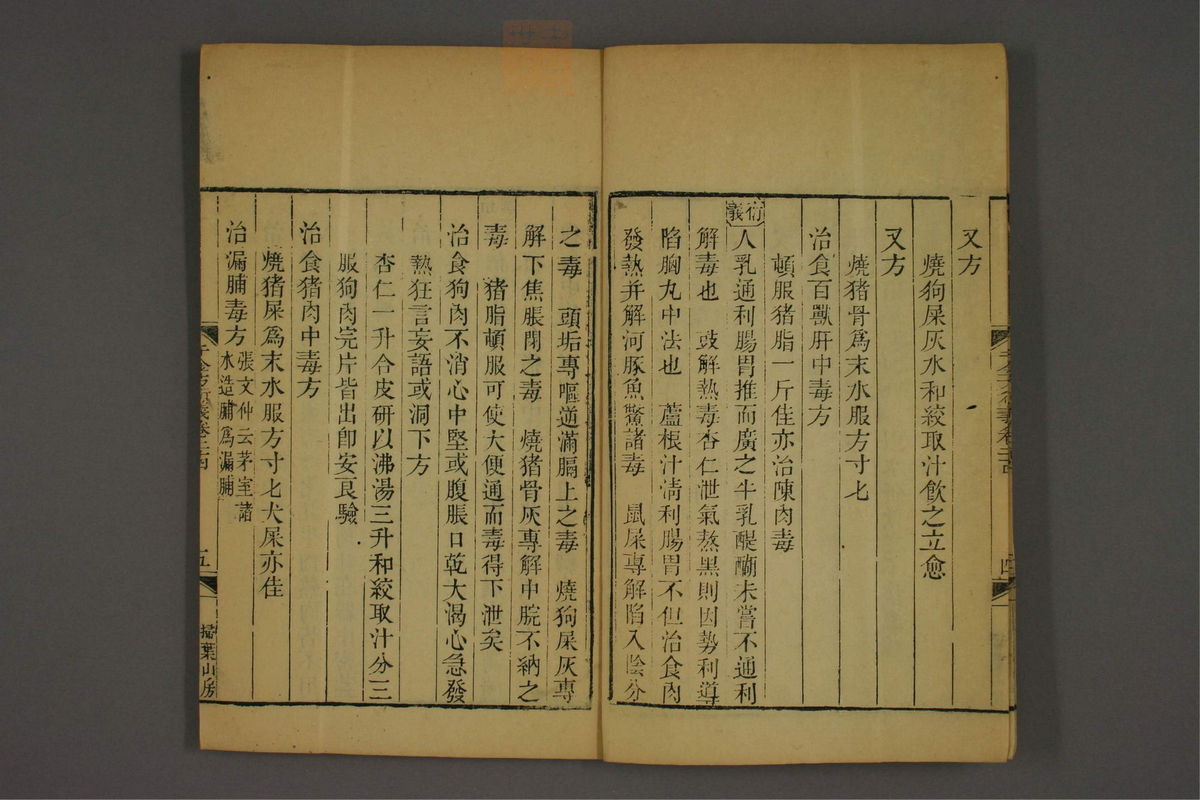 又方
燒狗屎灰水和絞取汁飲之立愈
又方
燒猪骨爲末水服方寸匕
治食百獸肝中毒方
頓服猪脂一斤佳亦治陳肉毒
衍義
人乳通利腸胃推而廣之牛乳醍醐未嘗不通利
解毒也　豉解熱毒杏仁泄氣熬黑則因勢利導
陷胸丸中法也　蘆根汁淸利腸胃不但治食肉
發熱并解河豚魚蟹諸毒　鼠屎專解陷入陰分
之毒　頭垢專嘔逆滿膈上之毒　燒狗屎灰專
解下焦脹閉之毒　燒猪骨灰專解中脘不納之
毒　猪脂頓服可使大便通而毒得下泄矣
治食狗肉不消心中堅或腹脹口乾大渴心急發
熱狂言妄語或洞下方
杏仁一升合皮研以沸湯三升和絞取汁分三
服狗肉完片皆出卽安良驗
治食猪肉中毒方
燒猪屎爲末水服方寸匕犬屎亦佳
治漏脯毒方
張文仲云茅室諸
水造脯爲漏脯
千金方衍義卷二十四
五
掃葉山房